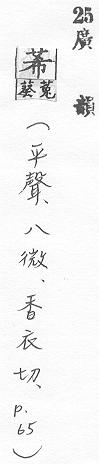 25廣韻
莃菟葵(平聲、八微、香衣切、p.65)